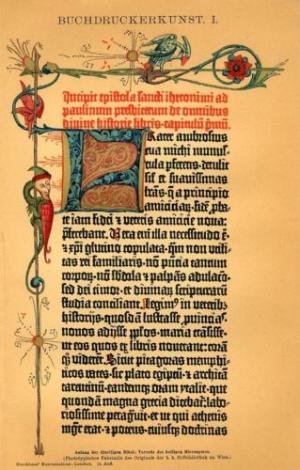 BUCHDRUCKERKUNST. I.
Incipit epistola sancti iheronimi ad
paulinum presbiterum de omnibus
divine historie libris · capitulū p̄mū.
Frater ambrosius
tua michi munus-
cula pferens · detulit
sil' et suavissimas
lr̄as · q̄ a principio
amiciciaȝ · fidē pba-
te iam fidei ⁊ veteris amicicie nova
pferebant. Vera eni illa necessitudo ē ·
⁊ xp̄i glutino copulata · qm̄ non utili-
tas rei familiaris · nō pn̄cia tantum
corpoȝ · nō sb̄dola ⁊ palpās adulacō ·
sed dei timor · et divinaȝ scripturarū
studia conciliant. Legim⁹ in veterib⁹
historijs · quosdā lustrasse ꝓuincias ·
novos adijsse pp̄los · maria trāsisse ·
ut eos quos ex libris noverant: corā
qȝ viderēt. Sicut pitagoras memphi-
ticos vates · sic plato egiptū · ⁊ architā
tarentinū · eandemqȝ oram ytalie · que
quondā magna grecia dicebat̄: labo-
riosissime peragravit · et ut qui athenis
mgr̄ erat · ⁊ potens · cuiusqȝ doctrinas
Anfang der 42zeiligen Bibel: Vorrede des heiligen Hieronymus.
(Phototypisches Faksimile des Originals der k. k. Hofbibliothek zu Wien.)
Brockhaus' Konversations-Lexikon. 14. Aufl.